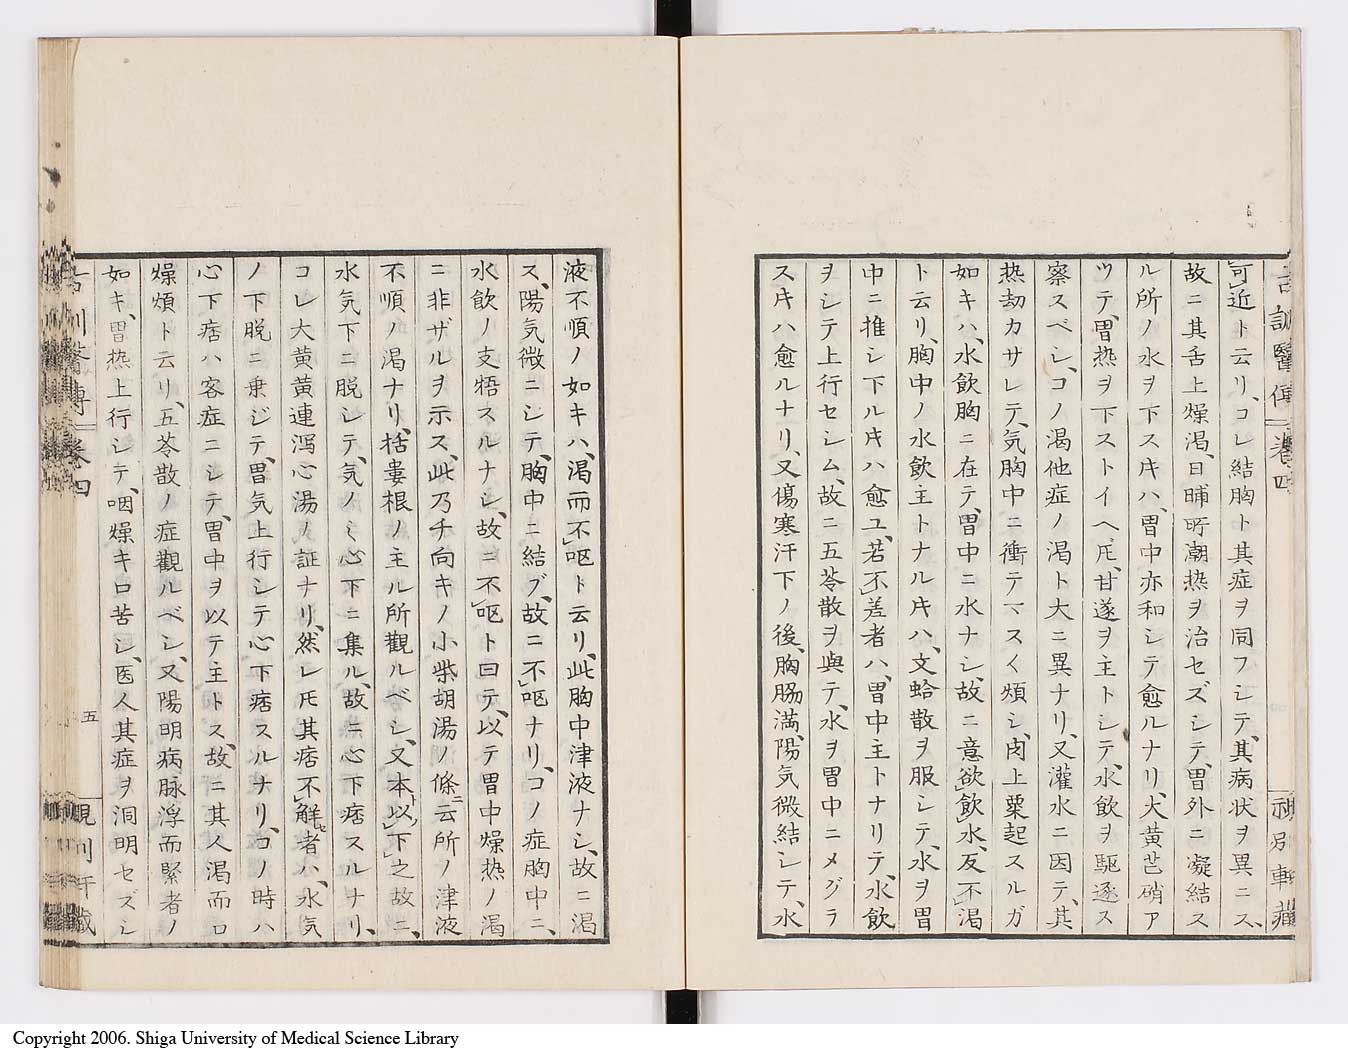 可近ト云リ、コレ結胸ト其症ヲ同フシテ、其病状ヲ異ニス、
故ニ其舌上燥渇、日晡所潮热ヲ治セズシテ、胃外ニ凝結ス
ル所ノ水ヲ下スキハ、胃中亦和シテ愈ルナリ、大黄芒硝ア
ツテ、胃热ヲ下ストイヘ𪜈、甘遂ヲ主トシテ、水飲ヲ駆逐ス
察スベシ、コノ渇他症ノ渇ト大ニ異ナリ、又灌水ニ因テ、其
热劫カサレテ、気胸中ニ衝テマスく煩シ、肉上粟起スルガ
如キハ、水飲胸ニ在テ、胃中ニ水ナシ、故ニ意欲飲水、反不渇
ト云リ、胸中ノ水飲主トナルキハ、文蛤散ヲ服シテ、水ヲ胃
中ニ推シ下ルキハ愈ユ、若不差者ハ、胃中主トナリテ、水飲
ヲシテ上行セシム、故ニ五苓散ヲ與テ、水ヲ胃中ニメグラ
スキハ愈ルナリ、又傷寒汗下ノ後、胸脇満、陽気微結シテ、水
液不順ノ如キハ、渇而不呕ト云リ、此胸中津液ナシ、故ニ渇
ス、陽気微ニシテ、胸中ニ結グ、故ニ不呕ナリ、コノ症胸中ニ、
水飲ノ支牾スルナシ、故ニ不呕ト曰テ、以テ胃中燥热ノ渇
ニ非ザルヲ示ス、此乃チ向キノ小柴胡湯ノ條ニ云所ノ津液
不順ノ渇ナリ、栝蔞根ノ主ル所觀ルベシ、又本以下之故ニ、
水気下ニ脱シテ、気ノミ心下ニ集ル、故ニ心下痞スルナリ、
コレ大黄黄連瀉心湯ノ証ナリ、然レ𪜈其痞不解者ハ、水気
ノ下脱ニ乗ジテ、胃気上行シテ心下痞スルナリ、コノ時ハ
心下痞ハ客症ニシテ、胃中ヲ以テ主トス、故ニ其人渇而口
燥煩ト云リ、五苓散ノ症觀ルベシ、又陽明病脉浮而緊者ノ
如キ、胃热上行シテ、咽燥キ口苦シ、医人其症ヲ洞明セズシ
五
Copyright 2006. Shiga University of Medical Science Library